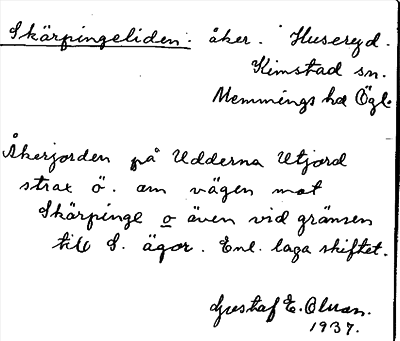 Skärpingeliden. åker. Huseryd.
Kimstad sn.
Memmings hd Ögl.
Åkerjorden på Udderna Utjord
strax ö. om vägen mot
Skärpinge o även vid gränsen
till S. ägor. Enl. laga skiftet.
Gustaf E. Olman.
1937.